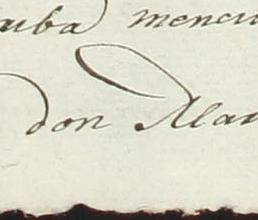 uba menciu
don Alau